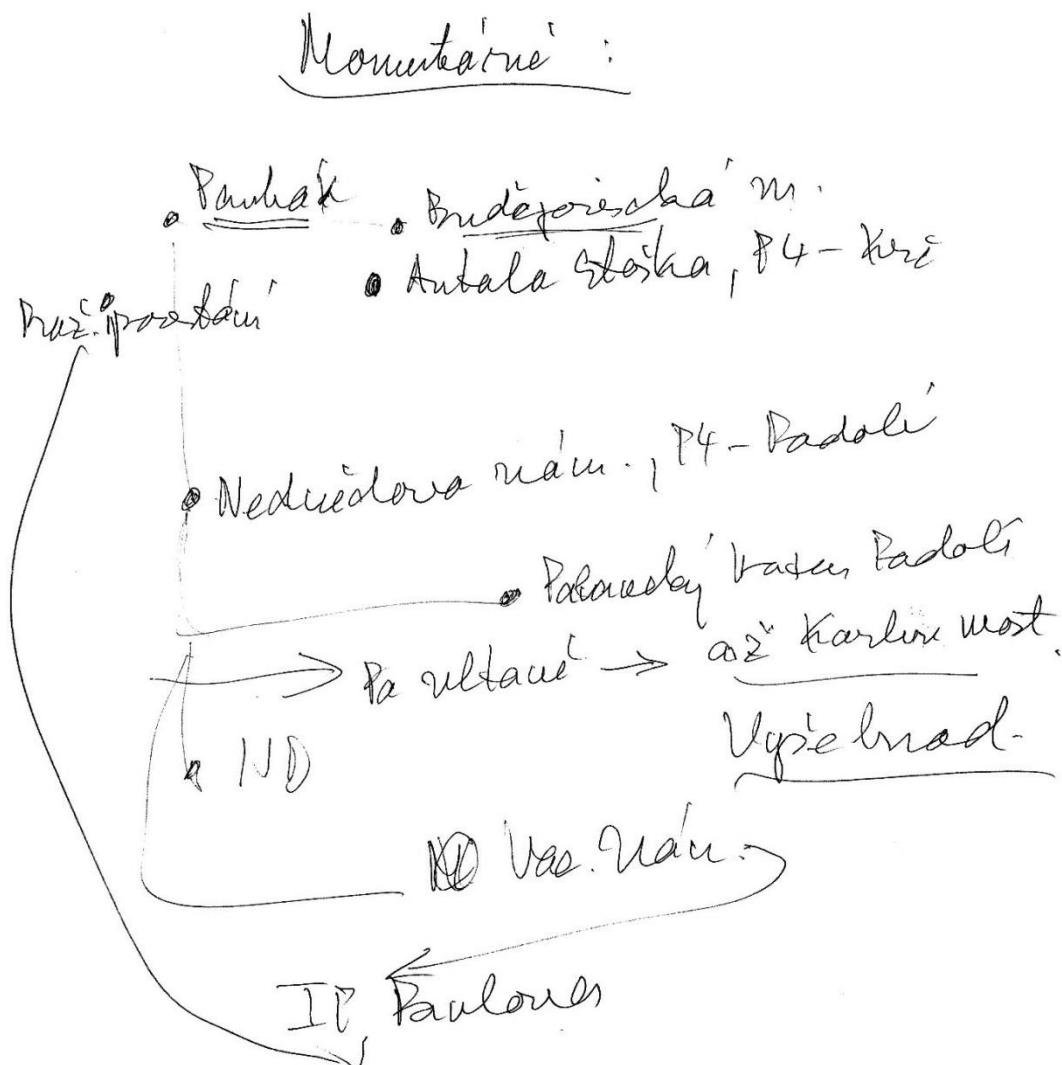 Momentárně :
Pankrác
Budějovická m.
Antala Staška, P4 - Krč
Praž. povstání
Nedvědovo nám., P4 - Podolí
Plavecký bazén Podolí
Po vltavě → až Karlův most.
Vyšehrad.
ND
Vac. Nám.
IP Pavlova